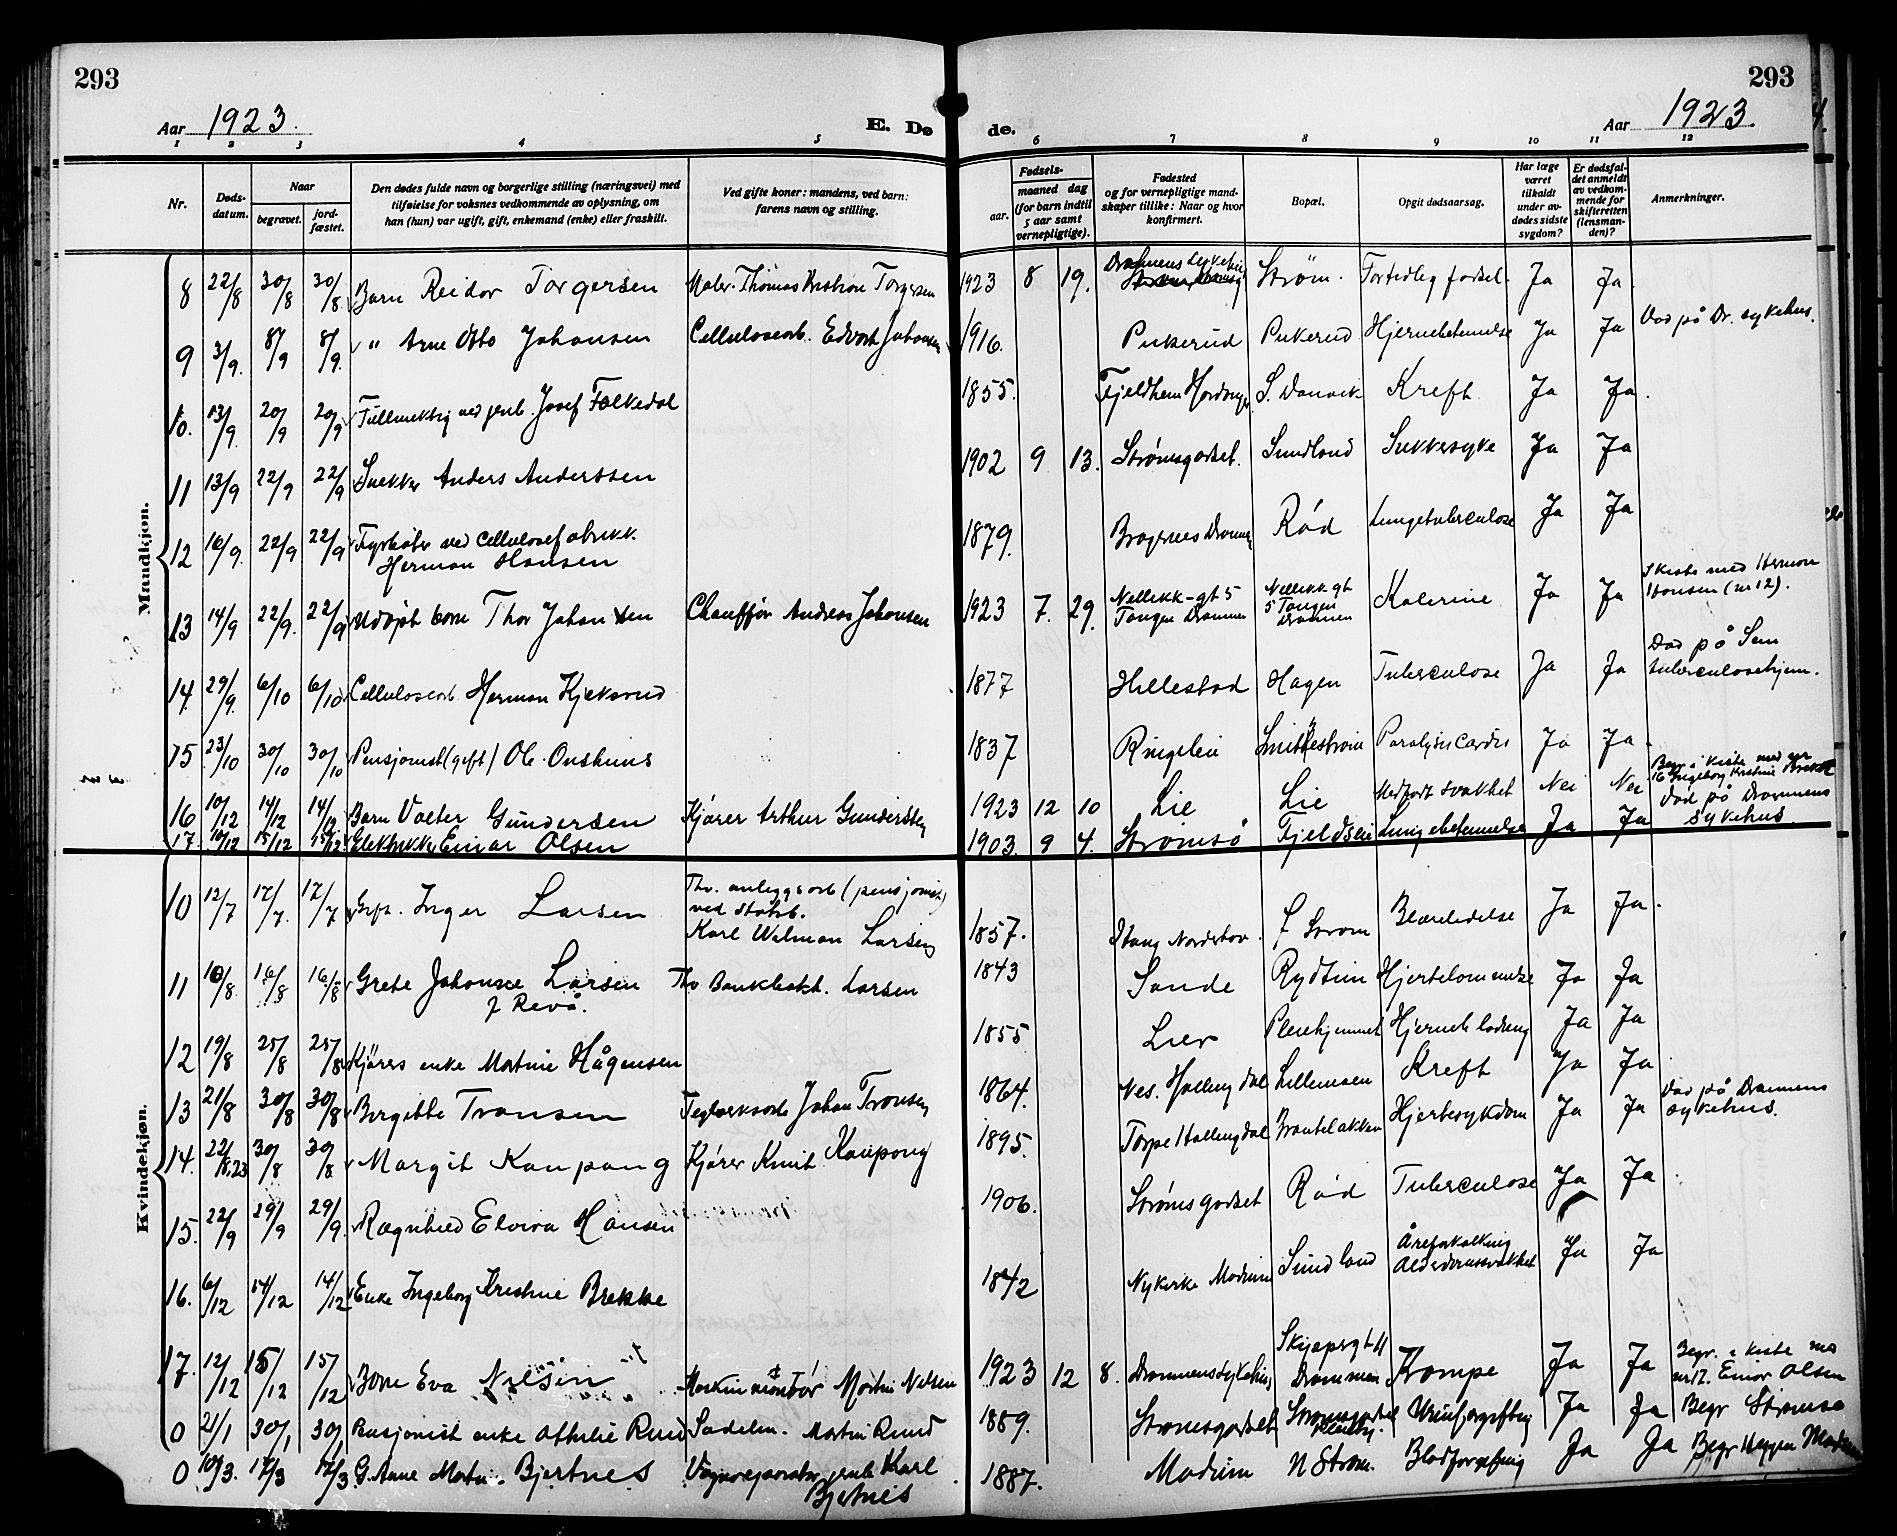 293
293
Aar 1923.
E. Dø
de.
Aar 1923.
1 2 3 4 5 6 7 8 9 10 11 12
Nr.
Døds-
datum.
Naar
begravet.
jord-
fæstet.
Den dødes fulde navn og borgerlige stilling (næringsvei) med
tilføielse for voksnes vedkommende av oplysning, om
han (hun) var ugift, gift, enkemand (enke) eller fraskilt.
Ved gifte koner: mandens, ved barn:
farens navn og stilling.
Fødsels-
aar.
maaned dag
(for barn indtil
5 aar samt
vernepligtige).
Fødested
og for vernepligtige mand-
skaper tillike: Naar og hvor
konfirmert.
Bopæl.
Opgit dødsaarsag.
Har læge
været
tilkaldt
under av-
dødes sidste
sygdom?
Er dødsfal-
det anmeldt
av vedkom-
mende for
skifteretten
(lensman-
den)?
Anmerkninger.
Mandkjøn.
8 22/8 30/8 30/8 Barn Reidar Torgersen Maler Thomas Kristian Torgersen 1923 8 19. Drammens sykehus Strøm. Fortidlig fødsel. Ja Ja
9 3/9. 8/9 8/9. " Arne Otto Johansen Cellulosearb. Edvart Johansen 1916. Pukerud Pukerud Hjernebetennelse Ja Ja Død på Dr. sykehus.
10. 13/9 20/9 20/9 Fullmektig ved jernb. Josef Folkedal 1855. S. Danvik Kreft Ja Ja.
11 13/9 22/9 22/9 Snekker Anders Anderssen 1902 9 13. Strømsgodset. Sundland Sukkersyke Ja Ja
12 16/9. 22/9 22/9 Fyrbøter ved cellulosefabrikk.
Herman Hansen 1879. Bragernes Drammen Rød Lungetuberculose Ja Ja
13 14/9 22/9. 22/9 Udøpt barn Thor Johansen Chauffør Andreas Johansen 1923 7. 29. Nellikk-gt 5
Tangen Drammen Nellikk gt
5 Tangen
Drammen Ja Ja I kiste med Herman
Hansen (nr 12).
14. 29/9. 6/10 6/10 Cellulosearb Herman Kjeksrud 1877 Hillestad Hagen Tuberculose Ja Ja Død på Sem
tuberculosehjem.
15 23/10 30/10 30/10 Pensjonist (gift) Ole Onshuus 1837 Smittestrøm Paralysis Cardis Ja Ja.
16 10/12 14/12 14/12 Barn Valter Gundersen Kjører Arthur Gundersen 1923 12 10 Lie Lie Medfødt svakhet Nei Nei Begr i kiste med nr
16 Ingeborg Kristine Brekke
17. 10/12 15/12 15/12 Elektrikker Einar Olsen 1903. 9 4. Strømsø Fjeldheim Lungebetennelse Ja Ja Død på Drammens
sykehus.
Kvindekjøn.
10 12/7 17/7. 17/7 Gift. Inger Larsen Fhv. anleggsarb (pensjonist)
ved statsb.
Karl Walman Larsen 1857. Stang Nordstov. S Strøm Blæreledelse Ja Ja.
11 10/8. 16/8 16/8 Grete Johanne Larsen
f Revå. Fhv Larsen 1843 Sande Rydtun Hjertelammelse Ja Ja
12 19/8 25/8 25/8 Kjørers enke Martine Hågensen 1855 Lier Pleiehjemmet Ja Ja
13 21/8 30/8 30/8 Birgitte Transen Teglverksarb Johan Transen 1864. Nes. Hallingdal Lillemoen Kreft Ja Ja
14. 22/8.23 30/8 30/8. Margit Kaupang Kjører Knut Kaupang 1895. Torpe Hallingdal Hjertesykdom Ja Ja Død på Drammens
sykehus.
15. 22/9 29/9 29/9. Ragnhild Elvira Hansen 1906. Strømsgodset Rød Tuberculose Ja Ja
16. 6/12 14/12 14/12 Enke Ingeborg Kristine Brekke 1842 Nykirke Modum Sundland Åreforkalkning
Alderdomssvakhet Ja Ja
17. 12/12 15/12 15/12 Barn Eva Nilsen Maskinmontør Martin Nilsen 1923 12 8. Drammens sykehus Skippergt 11
Drammen Krampe Ja Ja Begr. i kiste med
nr 17. Einar Olsen
0 21/1 30/1 30/1 Pensjonist enke Athilie Ruud Sadelm. Martin Ruud 1889. Strømsgodset Strømsgodset
pleiehj. Urinforgiftning Ja Ja Begr Strømsø
0 10/3. 17/3 17/3 G. Anne Marta Bjertnes Vognreparatør jernb Karl
Bjertnes 1887. Modum N Strøm. Blodforgiftning Ja Ja Begr Heggen Modum